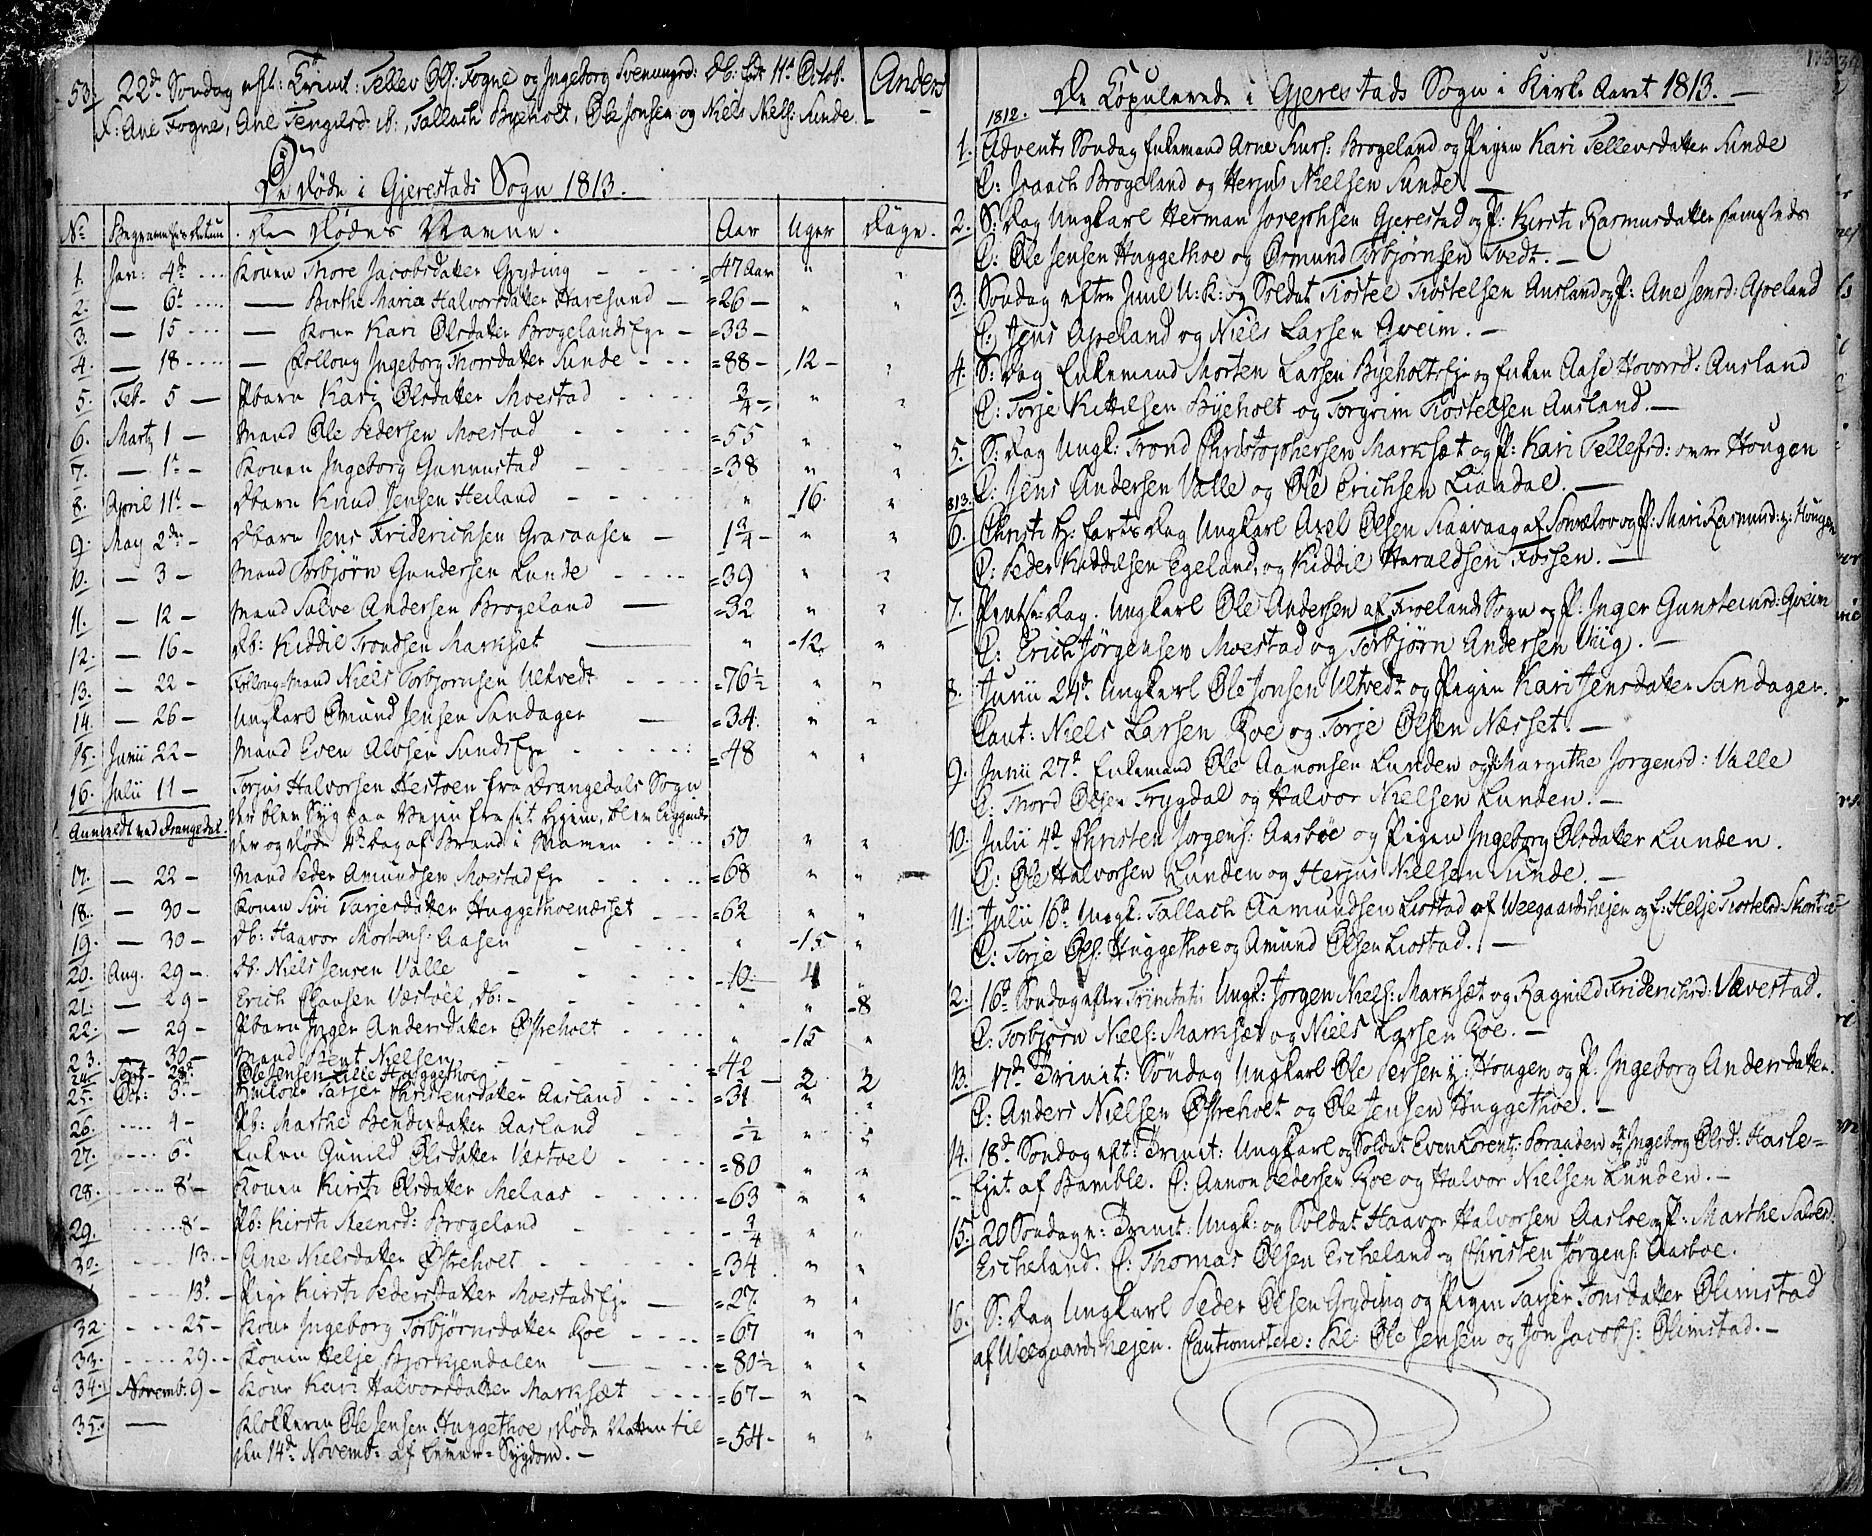 53. 22d Søndag eft: Trinit: Tellev Ols: Fogne og Ingeborg Svenungsd: Db: fød 11t Octob. Anders
F: Ane Fogne, Ane Tengilsd. ib., Tallach Byeholt, Ole Jonsen og Niels Niels: Sunde.
De Døde i Gjerestads Sogn 1813.
No Begravelses Datum den Dødes Navne. Aar Uger Dage.
1. Jan: 4de Konen Thore Jacobsdatter Gryding 47 Aar " "
2. — 6t — Birthe Maria Halvorsdatter Haresund 26 " "
3. — 15 — Kone Kari Olsdatter Brogelands Eje 33
4. — 18 — Folloug Ingeborg Thorsdatter Sunde 88 12 "
5. Feb. 5 Pbarn Kari Olsdatter Moestad 3/4 " "
6. Marty 1 Mand Ole Pedersen Moestad 55 " "
7. — 1 Konen Ingeborg Gunnestad 38 " "
8. April 11t Dbarn Knud Jensen Heiland " 16 "
9. May 2den Dbarn Jens Friderichsen Grasaasen 1 3/4 " "
10. — 3 Mand Torbjørn Gundersen Lunde 39 " "
11. — 12 Mand Salve Andersen Brogeland 32 " "
12. — 16 Db: Kiddil Trondsen Marksæt " 12 "
13. — 22 Folloug-Mand Niels Torbjørnsen Ueltvedt 76 1/2 " "
14. — 26 Ungkarl Omund Jensen Sandager 34 " "
15. Junii 22 Mand Even Alvsen Sunds Eje 48 " "
16. Julii 11 Torjus Halvorsen Hestøen fra Drangedals Sogn
Anmeldt ved Drangedal. der blev Syg paa Vejen fra sit Hjem, blev liggende
der og døde 4de Dag af Brand i Maven 50 " "
17. — 22 Mand Peder Amundsen Moestad Eje 68 " "
18. — 30 Konen Siri Tarjesdatter Huggethoenæsset 62 " "
19. — 30 Db: Haavor Mortens: Aasen " 15 "
20. Aug. 29 Db: Niels Jensen Valle 10 4 "
21. — 29 Erich Olausen Vestøel, Db: " " 8
22. — 29 Pbarn Inger Andersdatter Østreholt " 15 "
23. — 30 Mand Bent Nielsen 42
24. Sept. 28 Ole Jensen Lille Huggethoe — 2 2
25. Oct: 3 Tarjer Christensdatter Aasland 31 " "
26. 4 Pb: Marthe Bendixdatter Aasland 1/2 " "
27. 6 Enken Gunild Olsdatter Vestøel 80 " "
28. 8 Konen Kirsti Olsdatter Melaas 63 " "
29. 8 Pb: Kirsti Steensd: Brogeland 3/4 " "
30. 13 Ane Nielsdatter Østreholt 34 " "
13d Pige Kirsti Pedersdatter Moestads Eje 27 " "
32. 25 Kone Ingeborg Torbjørnsdatter Roe 67 " "
33. 29 Konen Helje Bjorkjendalen 80 1/2 " "
34. Novemb: 9 Kone Kari Halvorsdatter Marksæt 67 " "
35. — Klokkeren Ole Jensen Huggethoe, døde Natten til
den 14d Novemb: af Sygdom. 54 " "
De Copulerede i Gjerestads Sogn i Kirke Aaret 1813.
1812.
1. Advents Søndag Enkemand Arne Knuts: Brogeland og Pigen Kari Tellevsdatter Sunde
C: Isaach Brogeland og Herjus Nielsen Sunde.
2. S: Dag Ungkarl Herman Josephsen Gjerestad og P: Kirsti Rasmusdatter
C: Ole Jensen Huggethoe og Osmund Torbjørnsen Tvedt.
3. Søndag efter Juul U:K: og Soldat Trostel Trostelsen Ausland og P: Ane Jensd: Apeland
C: Jens Apeland og Niels Larsen Qveim.
4. S: Dag Enkemand Morten Larsen Byeholts Eje og Enken Aase Hovorsd: Ausland
C: Torje Kittilsen Byeholt og Torgrim Trostelsen Ausland.
5. S: Dag Ungk: Trond Christophersen Marksæt og P: Kari Tellefsd: øvre Hougen
C: Jens Andersen Valle og Ole Erichsen Liandal.
813.
6. Christi H: farts Dag Ungkarl Axel Olsen Staavaag af Sønneløv og P: Mari Rasmusd: y: Hougen
C: Peder Kiddilsen Egeland, og Kiddil Haraldsen Fossen.
7. Pintse-Dag. Ungkarl Ole Andersen af Froeland Sogn og P: Inger Gunsteinsd: Qveim
C: Erich Jörgensen Moestad og Torbjørn Andersen Viig.
8. Junii 24d. Ungkarl Ole Jonsen Ultvedt og Pigen Kari Jensdatter Sandager.
Caut: Niels Larsen Roe og Torje Olsen Næsset.
9. Junii 27d Enkemand Ole Aanonsen Lunden og P: Margithe Jorgensd: Valle
C: Thord Olsen Trygdal og Halvor Nielsen Lunden.
10. Julii 4d Christen Jorgens: Aasbøe og Pigen Ingeborg Olsdatter Lunden.
C: Ole Halvorsen Lunden og Herjus Nielsen Sunde.
11. Julii 16d. Ungk: Tallach Aamundsen Liostad af Weegaardshejen og P: Helje Trostelsd:
C: Torje Ols: Huggethoe og Amund Olsen Liostad.
12. 16d Søndag efter Trinitatis Ungk: Jorgen Niels: Marksæt og Ragnild Friderichsd: Vævestad.
C: Torbjørn Niels: Marksæt og Niels Larsen Roe.
13. 17d Trinit: Søndag Ungkarl Ole Persen y: Hougen og P: Ingeborg Andersdatter.
C: Anders Nielsen Østreholt og Ole Jensen Huggethoe.
14. 18d Søndag eft: Trinit: Ungkarl og Soldat Even Lorentz: Soraaden og P: Ingeborg Olsd: Hasle=
Ejet af Bamble. C: Aanon Pedersen Roe og Halvor Nielsen Lunden.
15. 20 Søndag e: Trinit. Ungk: og Soldat Haavor Halvorsen Aasbøe og P: Marthe Salvesd:
Eicheland. C: Thomas Olsen Eicheland og Christen Jørgens: Aasboe.
16. S: Dag Ungkarl Peder Olsen Gryding og Pigen Tarjer Jonsdatter Olimstad
af Weegaardshejen. Cautionistere: Kl: Ole Jensen og Jon Jacobs: Olimstad.